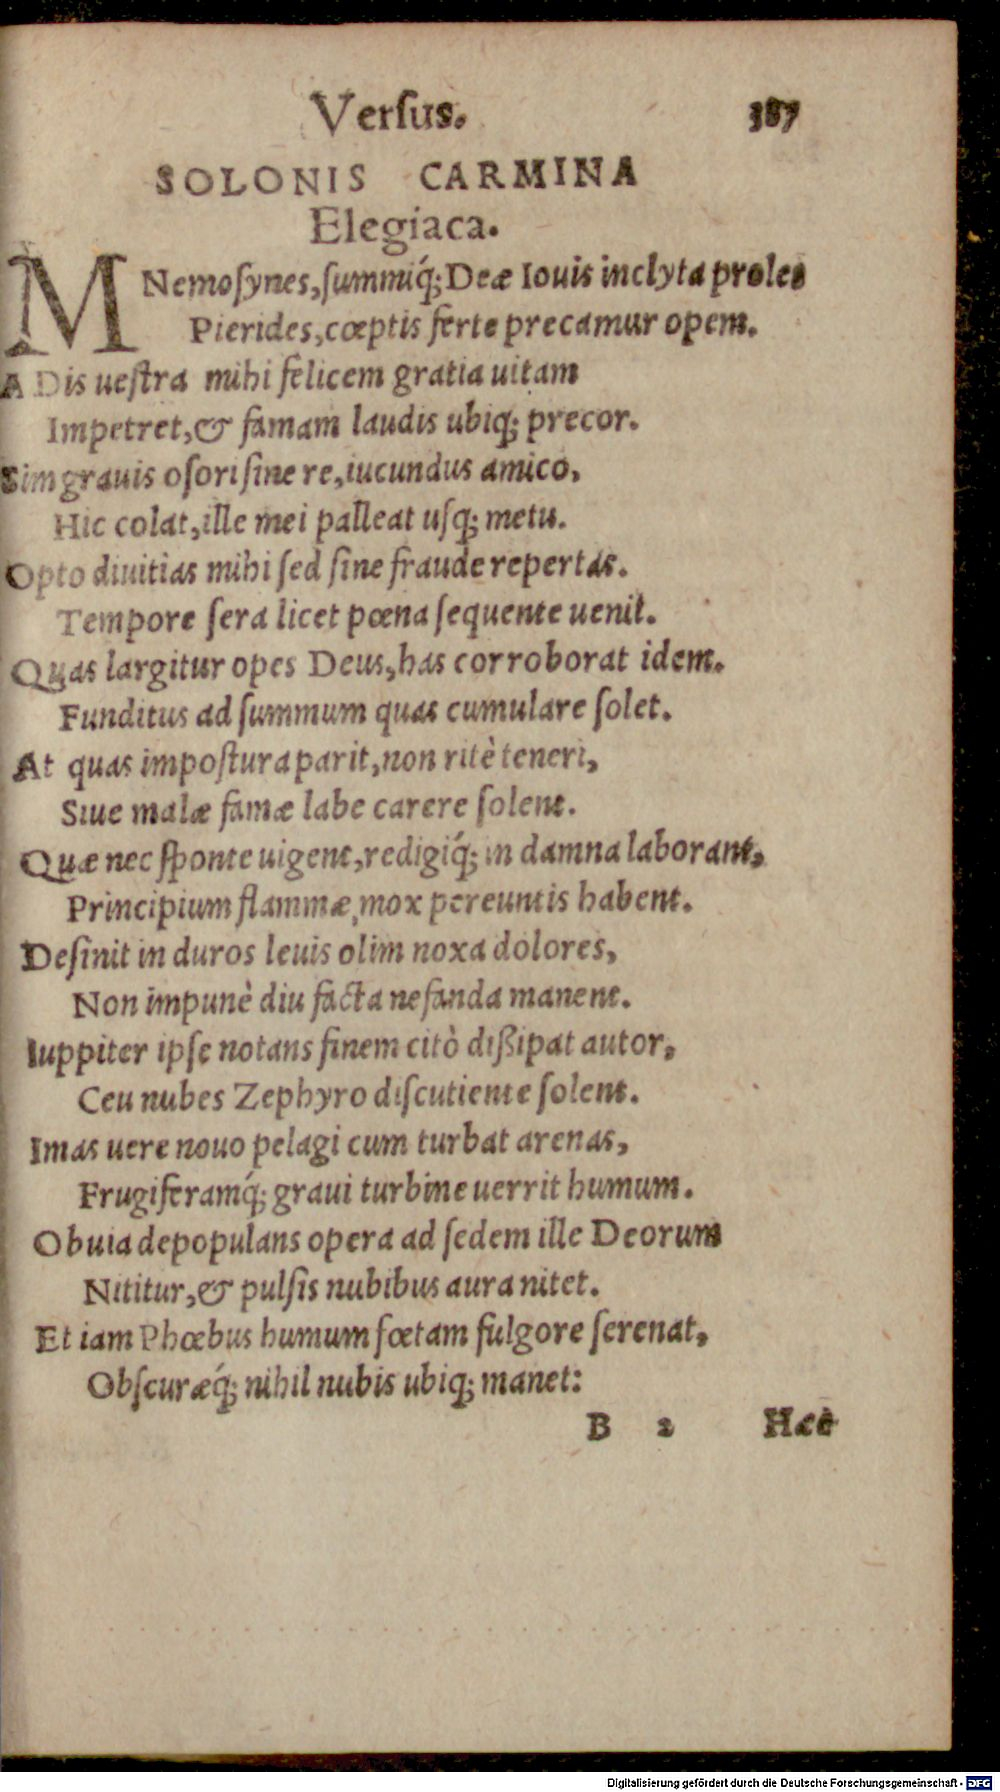 Verſus. 387
SOLONIS CARMINA
Elegiaca.
MNemoſynes, ſummiq́; Deæ Iouis inclyta proles
Pierides, cœptis ferte precamur opem.
A Dis ueſtra mihi felicem gratia uitam
Impetret, & famam laudis ubiq; precor.
Sim grauis oſori ſine re, iucundus amico,
Hic colat, ille mei palleat uſq; metu.
Opto diuitias mihi ſed ſine fraude repertas.
Tempore ſera licet pœna ſequente uenit.
Quas largitur opes Deus, has corroborat idem.
Funditus ad ſummum quas cumulare ſolet.
At quas impoſtura parit, non ritè teneri,
Siue malæ famæ labe carere ſolent.
Quæ nec ſponte uigent, redigiq́; in damna laborant,
Principium flammæ mox pereuntis habent.
Deſinit in duros leuis olim noxa dolores,
Non impunè diu facta nefanda manent.
Iuppiter ipſe notans finem citò diſsipat autor,
Ceu nubes Zephyro diſcutiente ſolent.
Imas uere nouo pelagi cum turbat arenas,
Frugiferamq́; graui turbine uerrit humum.
Obuia depopulans opera ad ſedem ille Deorum
Nititur, & pulſis nubibus aura nitet.
Et iam Phœbus humum fœtam fulgore ſerenat,
Obſcuræq́; nihil nubis ubiq; manet:
B 2 Hæc
Digitalisierung gefördert durch die Deutsche Forschungsgemeinschaft - DFG